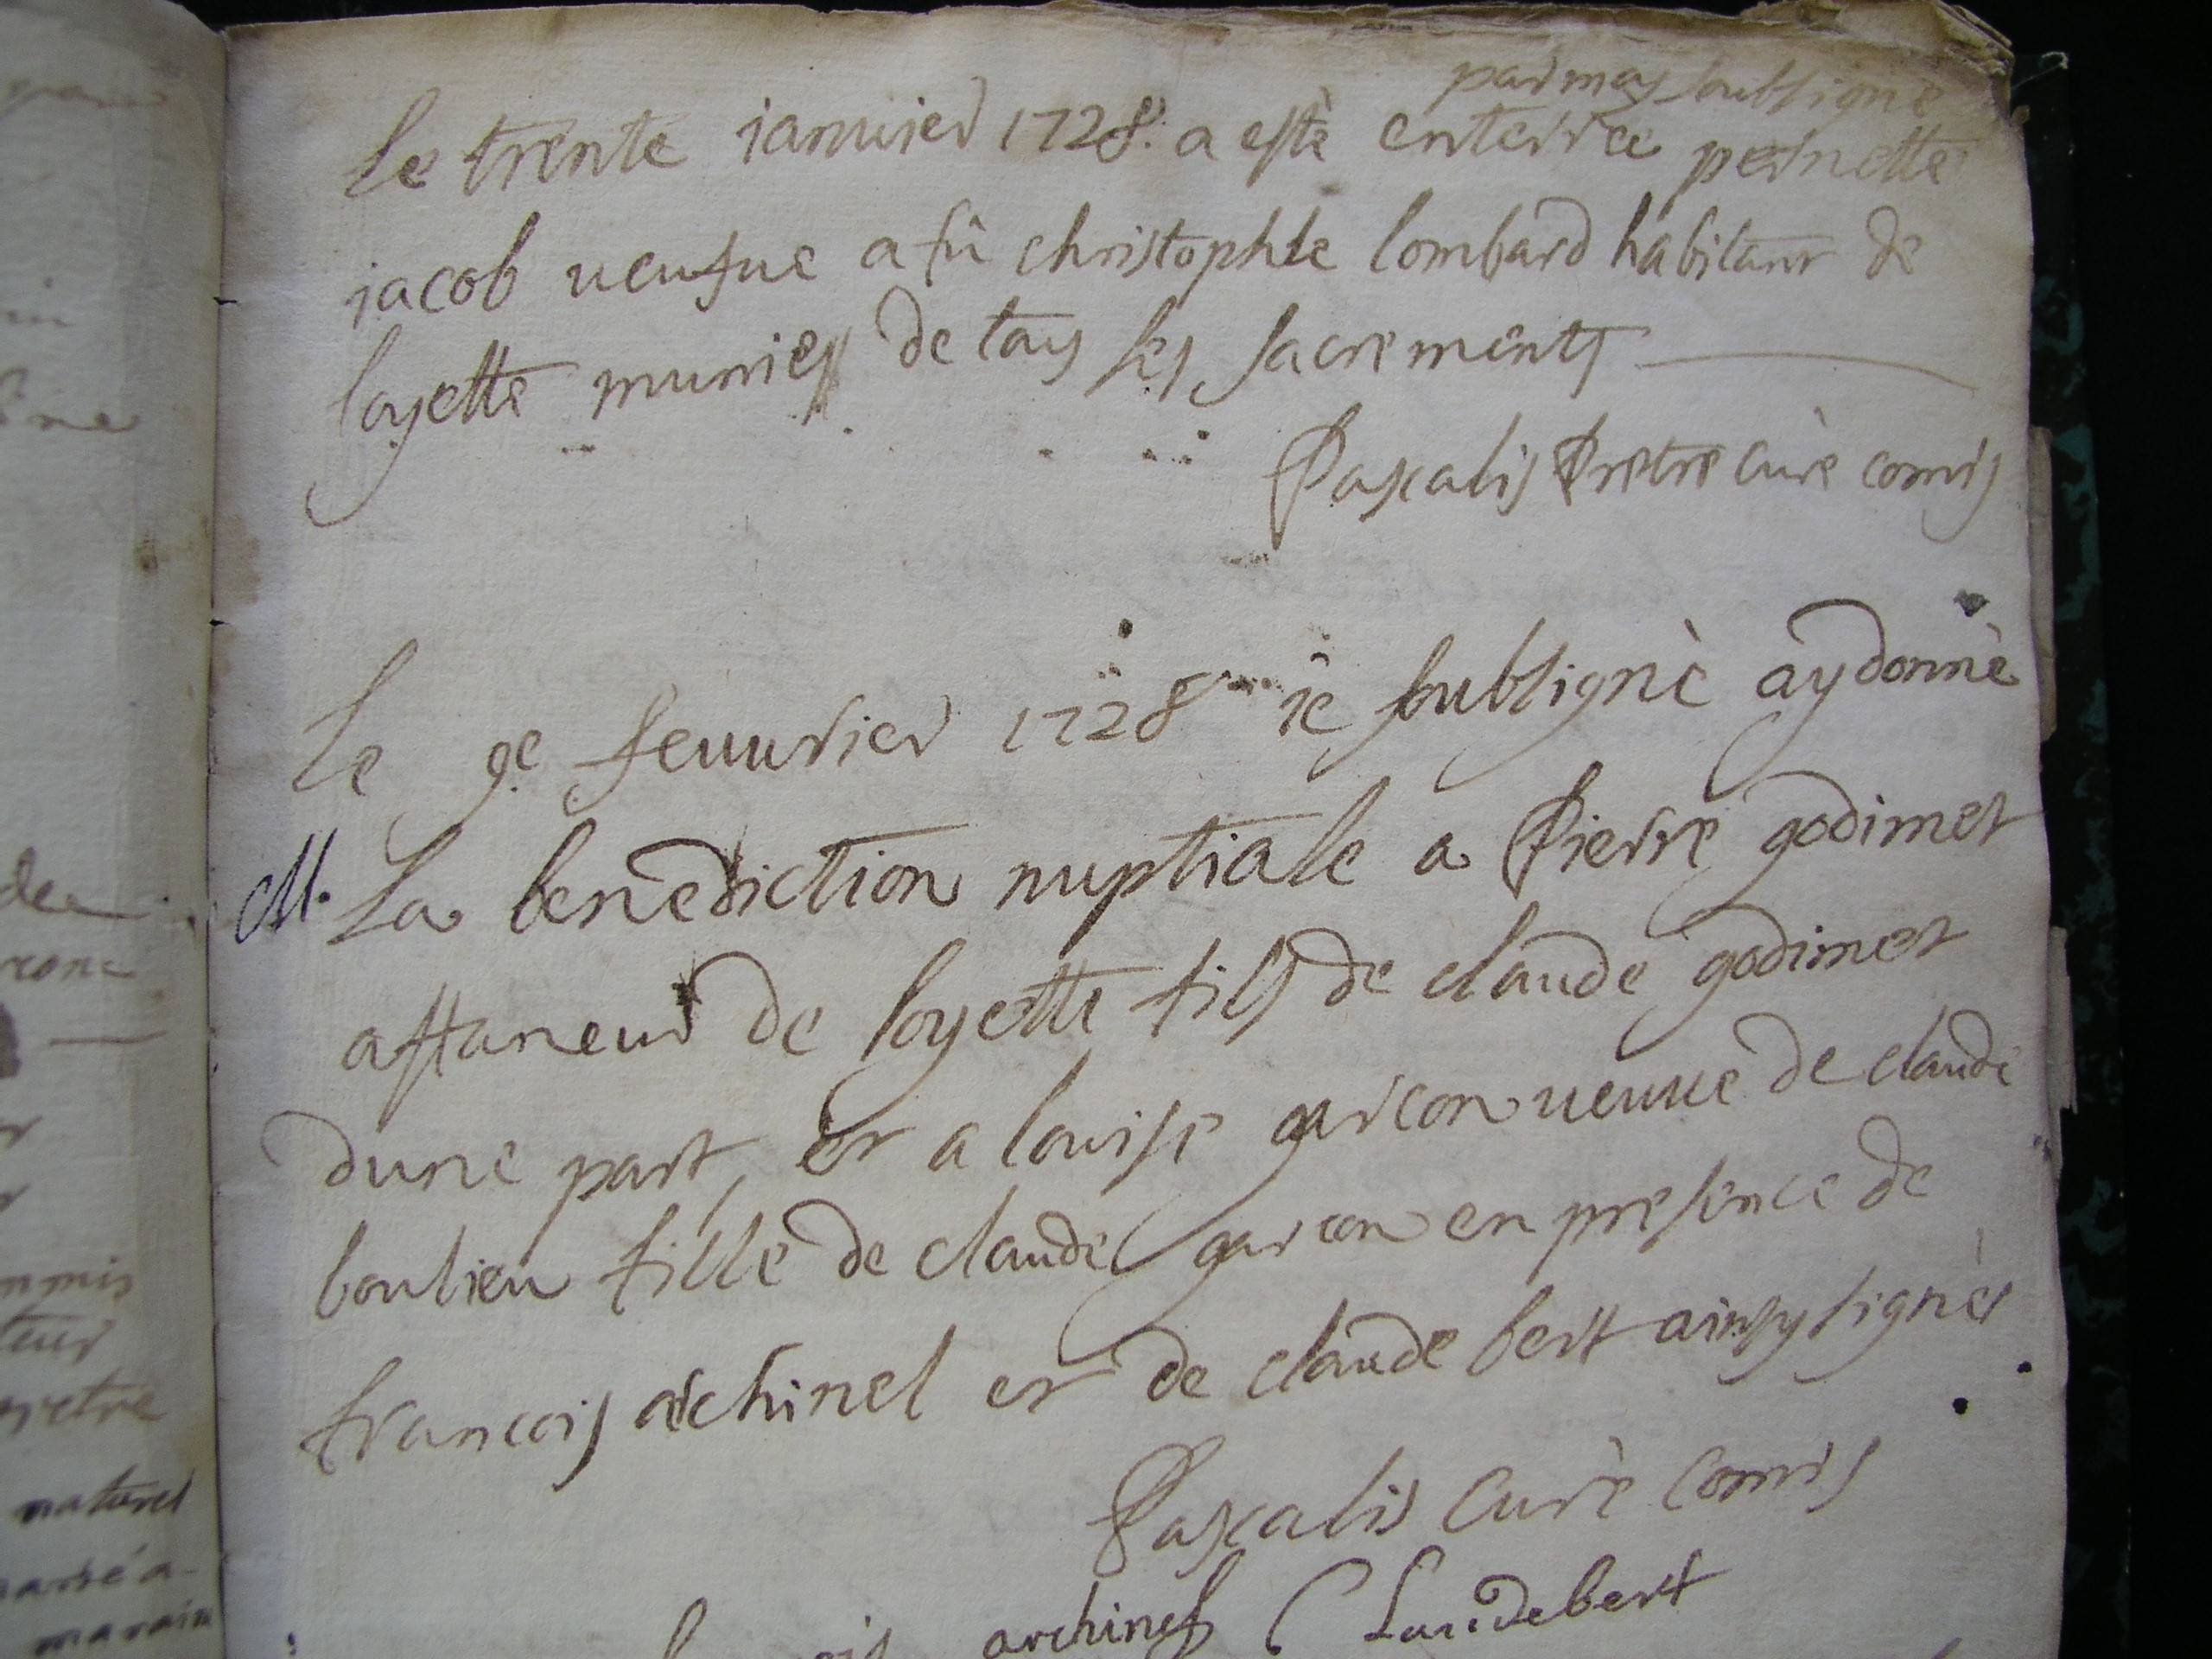 par moy soubsigné
Le trente ianuier 1728. a estè enterrée pernette
jacob ueufue a fû christophle lombard habitant de
loyette munie de tous ses sacrements
Pascalis Pretre curè comis
Le 9e feuurier 1728 ie soubsignè ay donnè
M. La benediction nuptiale a Pierre godimet
affaneur de loyette fils de claude godimet
dune part, et a louise garcon ueuue de claude
boulieu fille de claude garcon en presence de
francois archinel et de claude bert ainsy signés
Pascalis Curè Comis
archinel Claudebert
de
ronc
mmis
teur
pretre
naturel
maraine